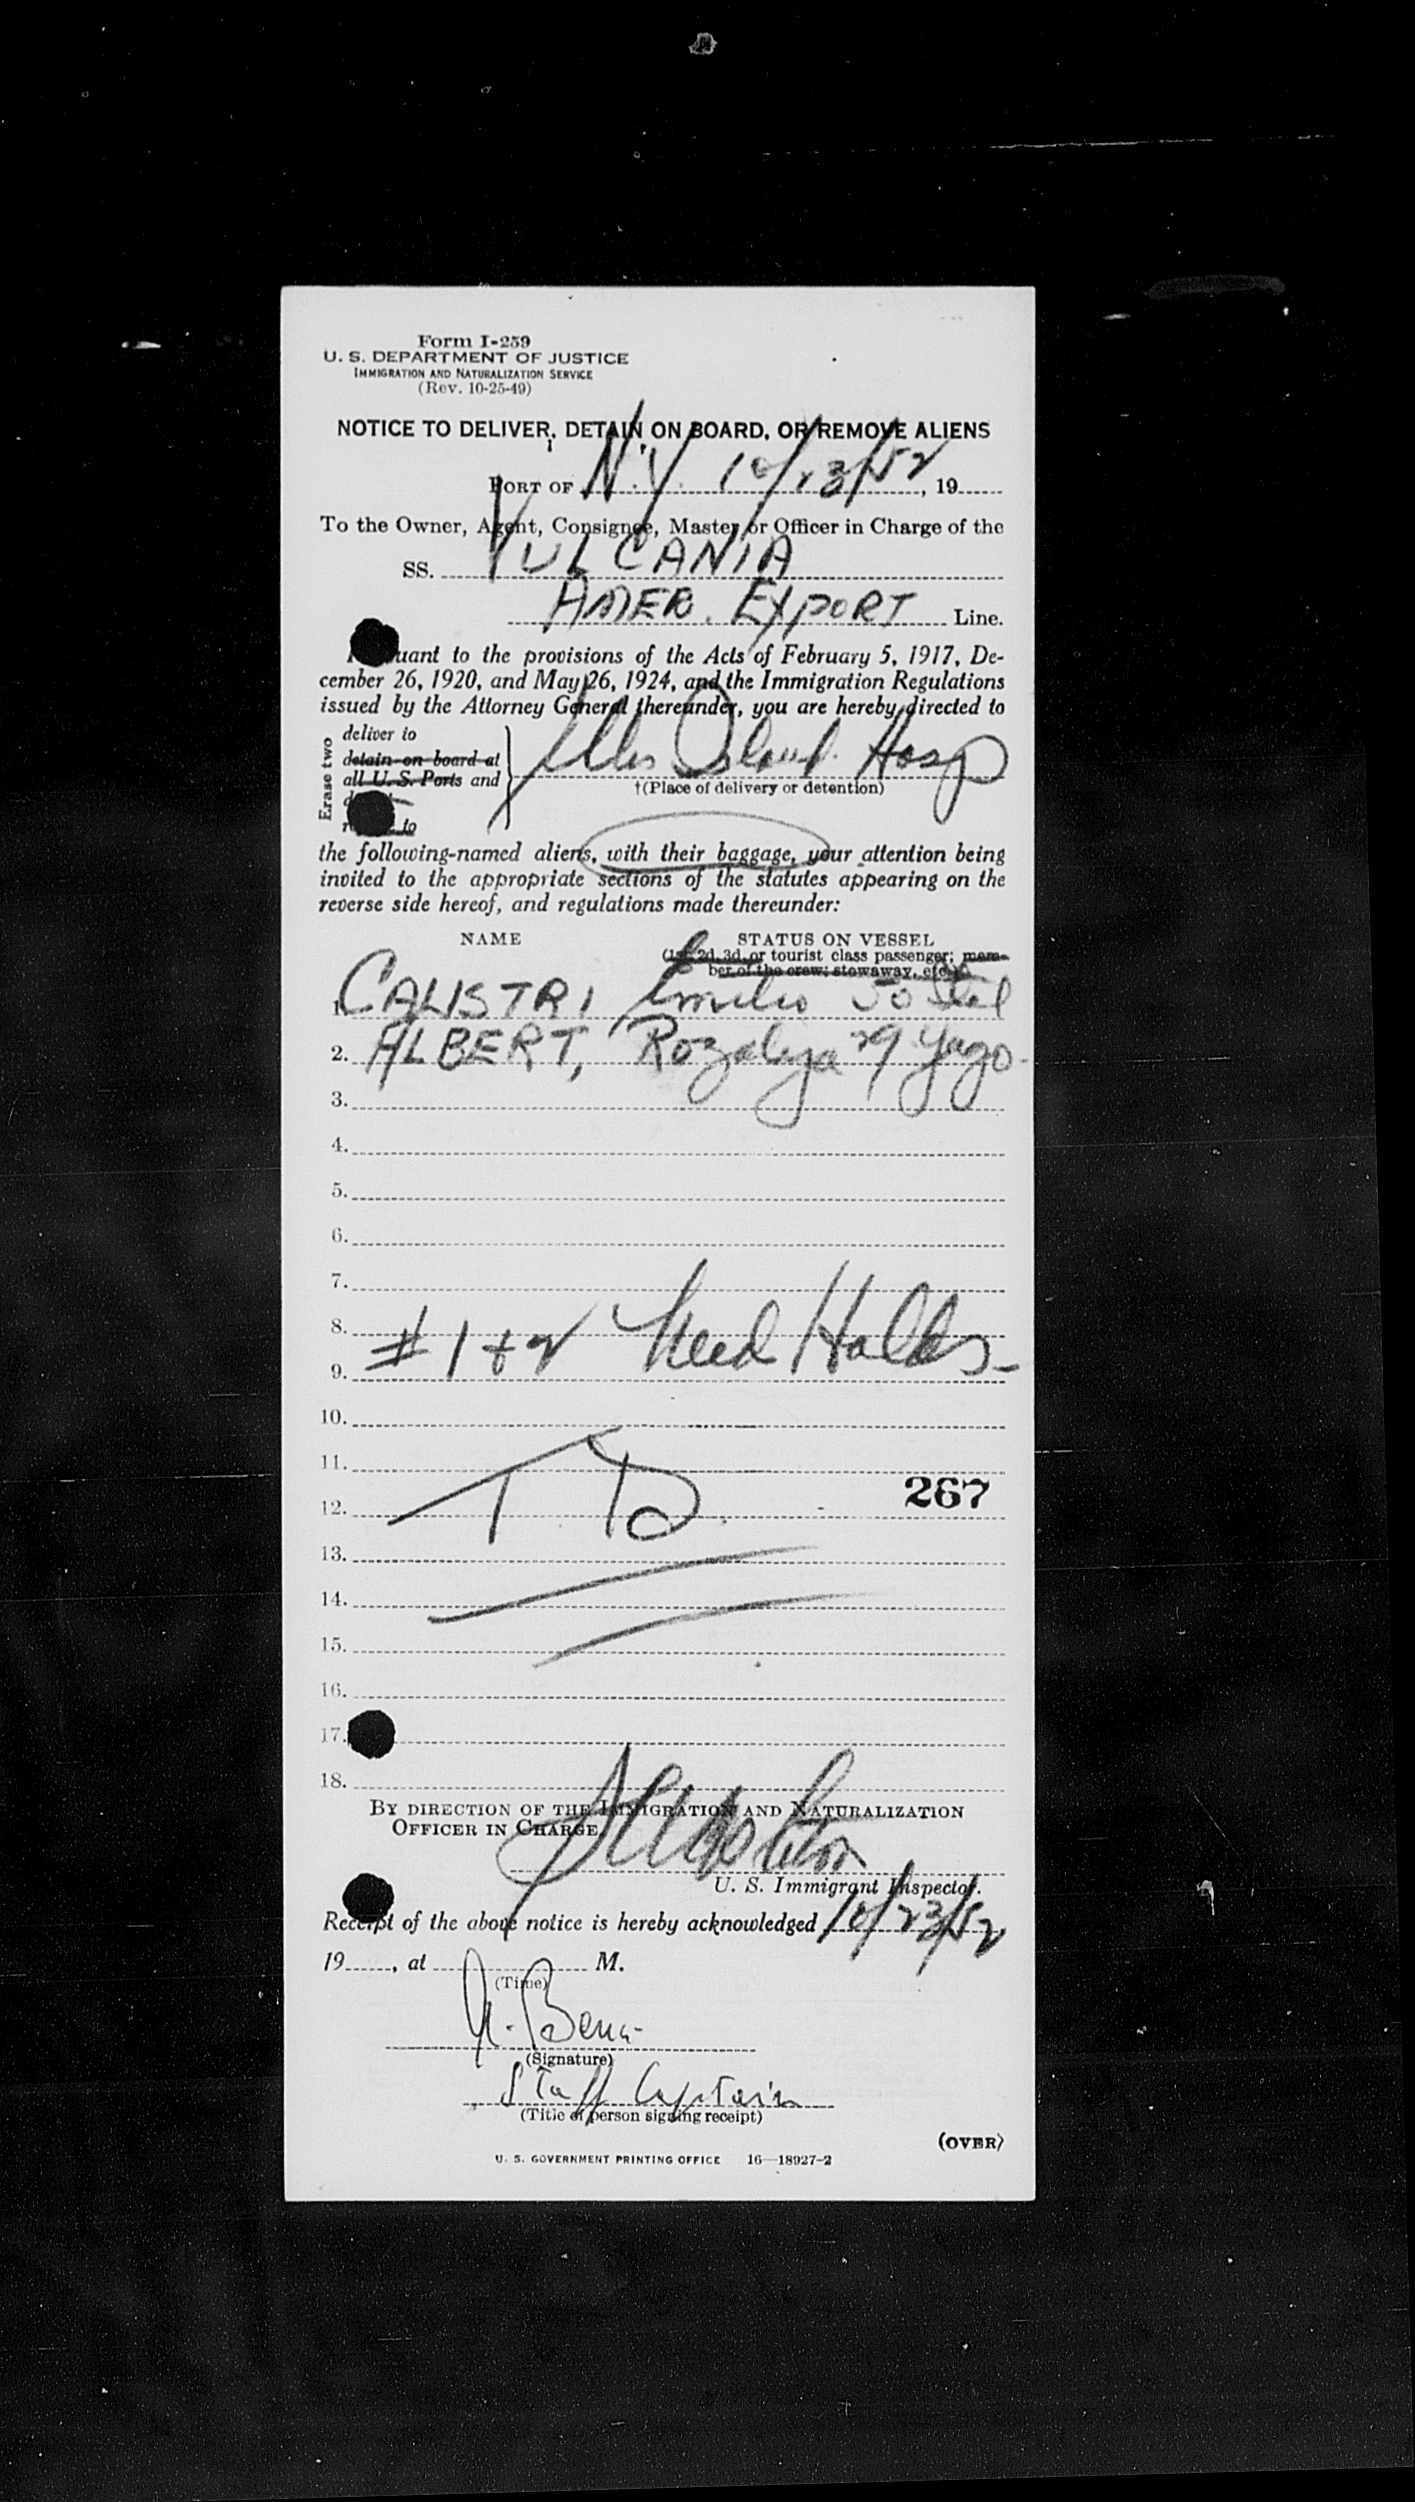 Form I-259
U. S. DEPARTMENT OF JUSTICE
IMMIGRATION AND NATURALIZATION SERVICE
(Rev. 10-25-49)
NOTICE TO DELIVER, DETAIN ON BOARD, OR REMOVE ALIENS
PORT OF N.Y. 10/23/52, 19
To the Owner, Agent, Consignee, Master, or Officer in Charge of the
SS. VULCANIA
AMER. EXPORT Line.
uant to the provisions of the Acts of February 5, 1917, De-
cember 26, 1920, and May 26, 1924, and the Immigration Regulations
issued by the Attorney General thereunder, you are hereby directed to
Erase two
deliver to
detain on board at
all U. S. Ports and
to
Ellis Island Hosp
†(Place of delivery or detention)
the following-named aliens, with their baggage, your attention being
invited to the appropriate sections of the statutes appearing on the
reverse side hereof, and regulations made thereunder:
NAME STATUS ON VESSEL
(1st, 2d, 3d, or tourist class passenger; mem-
ber of the crew; stowaway, etc.)
1. CALISTRI Emilio 50
2. ALBERT, Rozalija 29 Yugo-
3.
4.
5.
6.
7.
8. #1 + 2 Med Holds-
9.
10.
11.
12. TD 267
13.
14.
15.
16.
17.
18.
BY DIRECTION OF THE IMMIGRATION AND NATURALIZATION
OFFICER IN CHARGE.
U. S. Immigrant Inspector.
Receipt of the above notice is hereby acknowledged 10/23/52
19, at M.
(Time)
(Signature)
Staff Captain
(Title of person signing receipt)
(OVER)
U. S. GOVERNMENT PRINTING OFFICE 16—18927-2